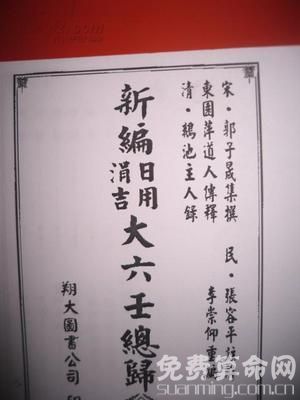 宋·郭子晟集撰
東園萍道人傳釋
清·鵝池主人錄
民·張容平
李崇仰重
新編日用涓吉大六壬總歸
翔大圖書公司印
免费算命网
suanming.com.cn